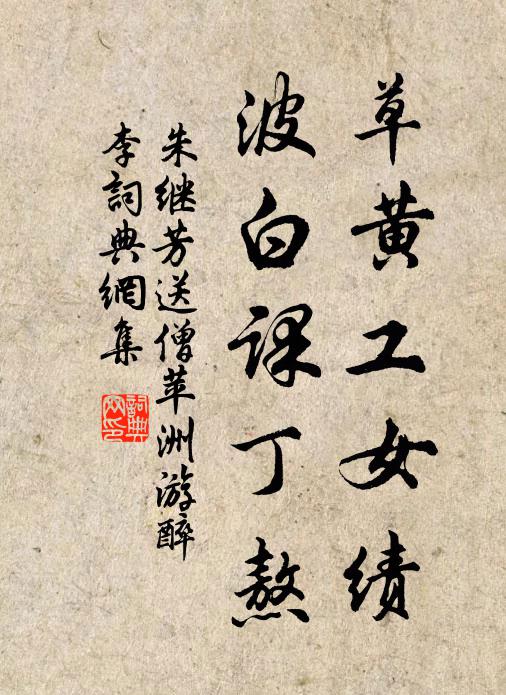 草黄工女绩
波白课丁熬
朱继芳送僧苹洲游醉
李詞典網集
詞典网印